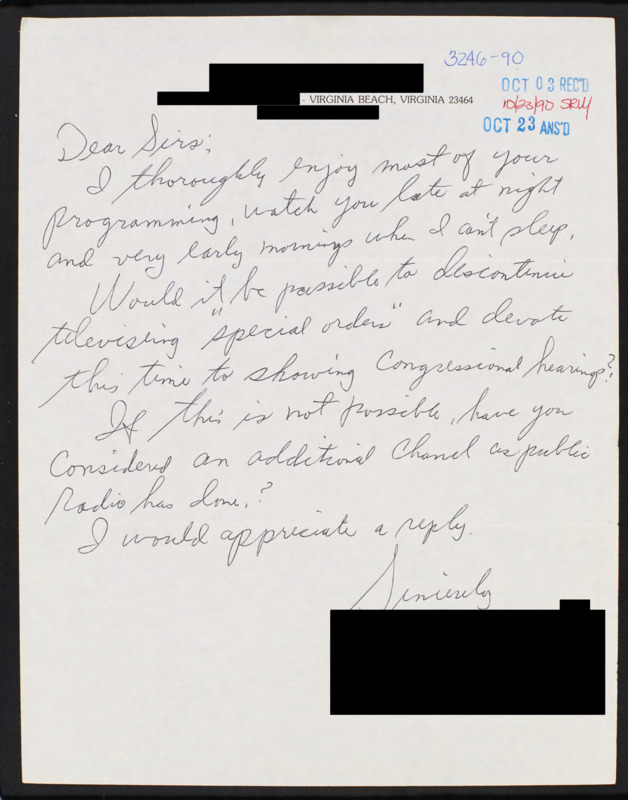 3246-90
OCT 03 REC'D
10/23/90 SRW
OCT 23 ANS'D
- VIRGINIA BEACH, VIRGINIA 23464
Dear Sirs:
I thoroughly enjoy most of your
programming, watch you late at night
and very early mornings when I can't sleep.
Would it be possible to discontinue
televising "special orders" and devote
this time to showing Congressional hearings?
If this is not possible, have you
Considered an additional Chanel as public
Radio has done.?
I would appreciate a reply.
Sincerely